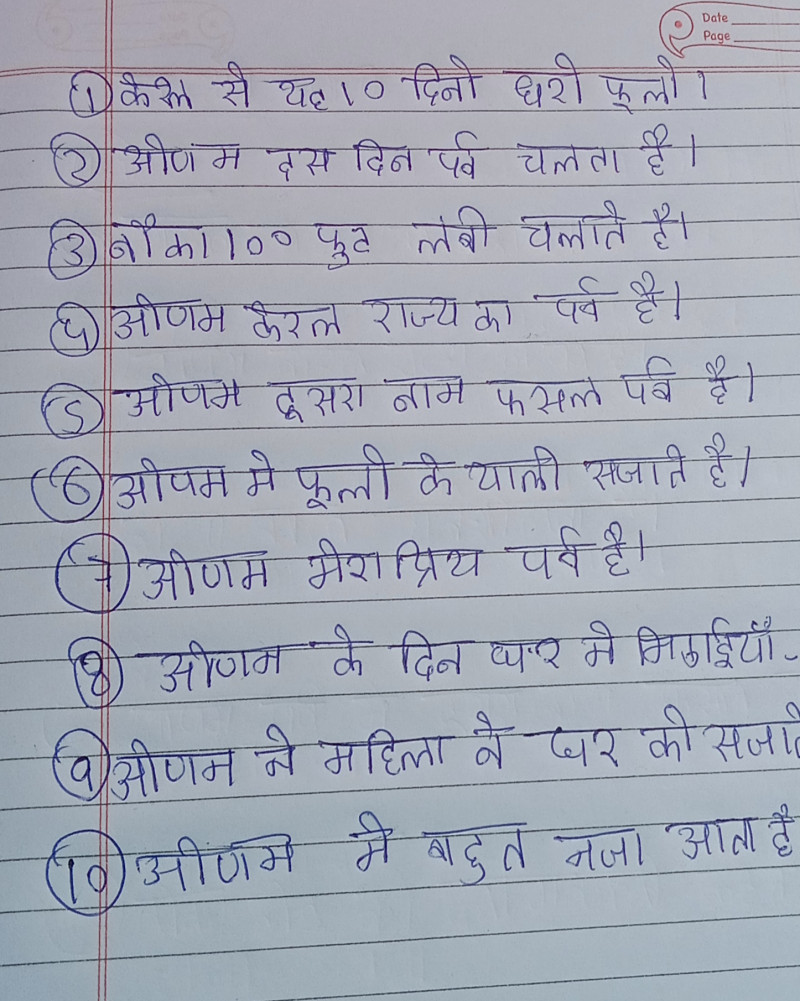 Date
Page
① केरल से यह 10 दिनो घरो फूलो।
② ओणम दस दिन पर्व चलता है।
③ नौका 100 फुट लंबी चलाते है।
④ ओणम केरल राज्य का पर्व है।
⑤ ओणम दूसरा नाम फसल पर्व है।
⑥ ओणम मे फूलो के थाली सजाते है।
⑦ ओणम मेरा प्रिय पर्व है।
⑧ ओणम के दिन घर मे मिठाईयाँ-
⑨ ओणम ने महिला ने घर को सजाते
⑩ ओणम मे बहुत मजा आता है